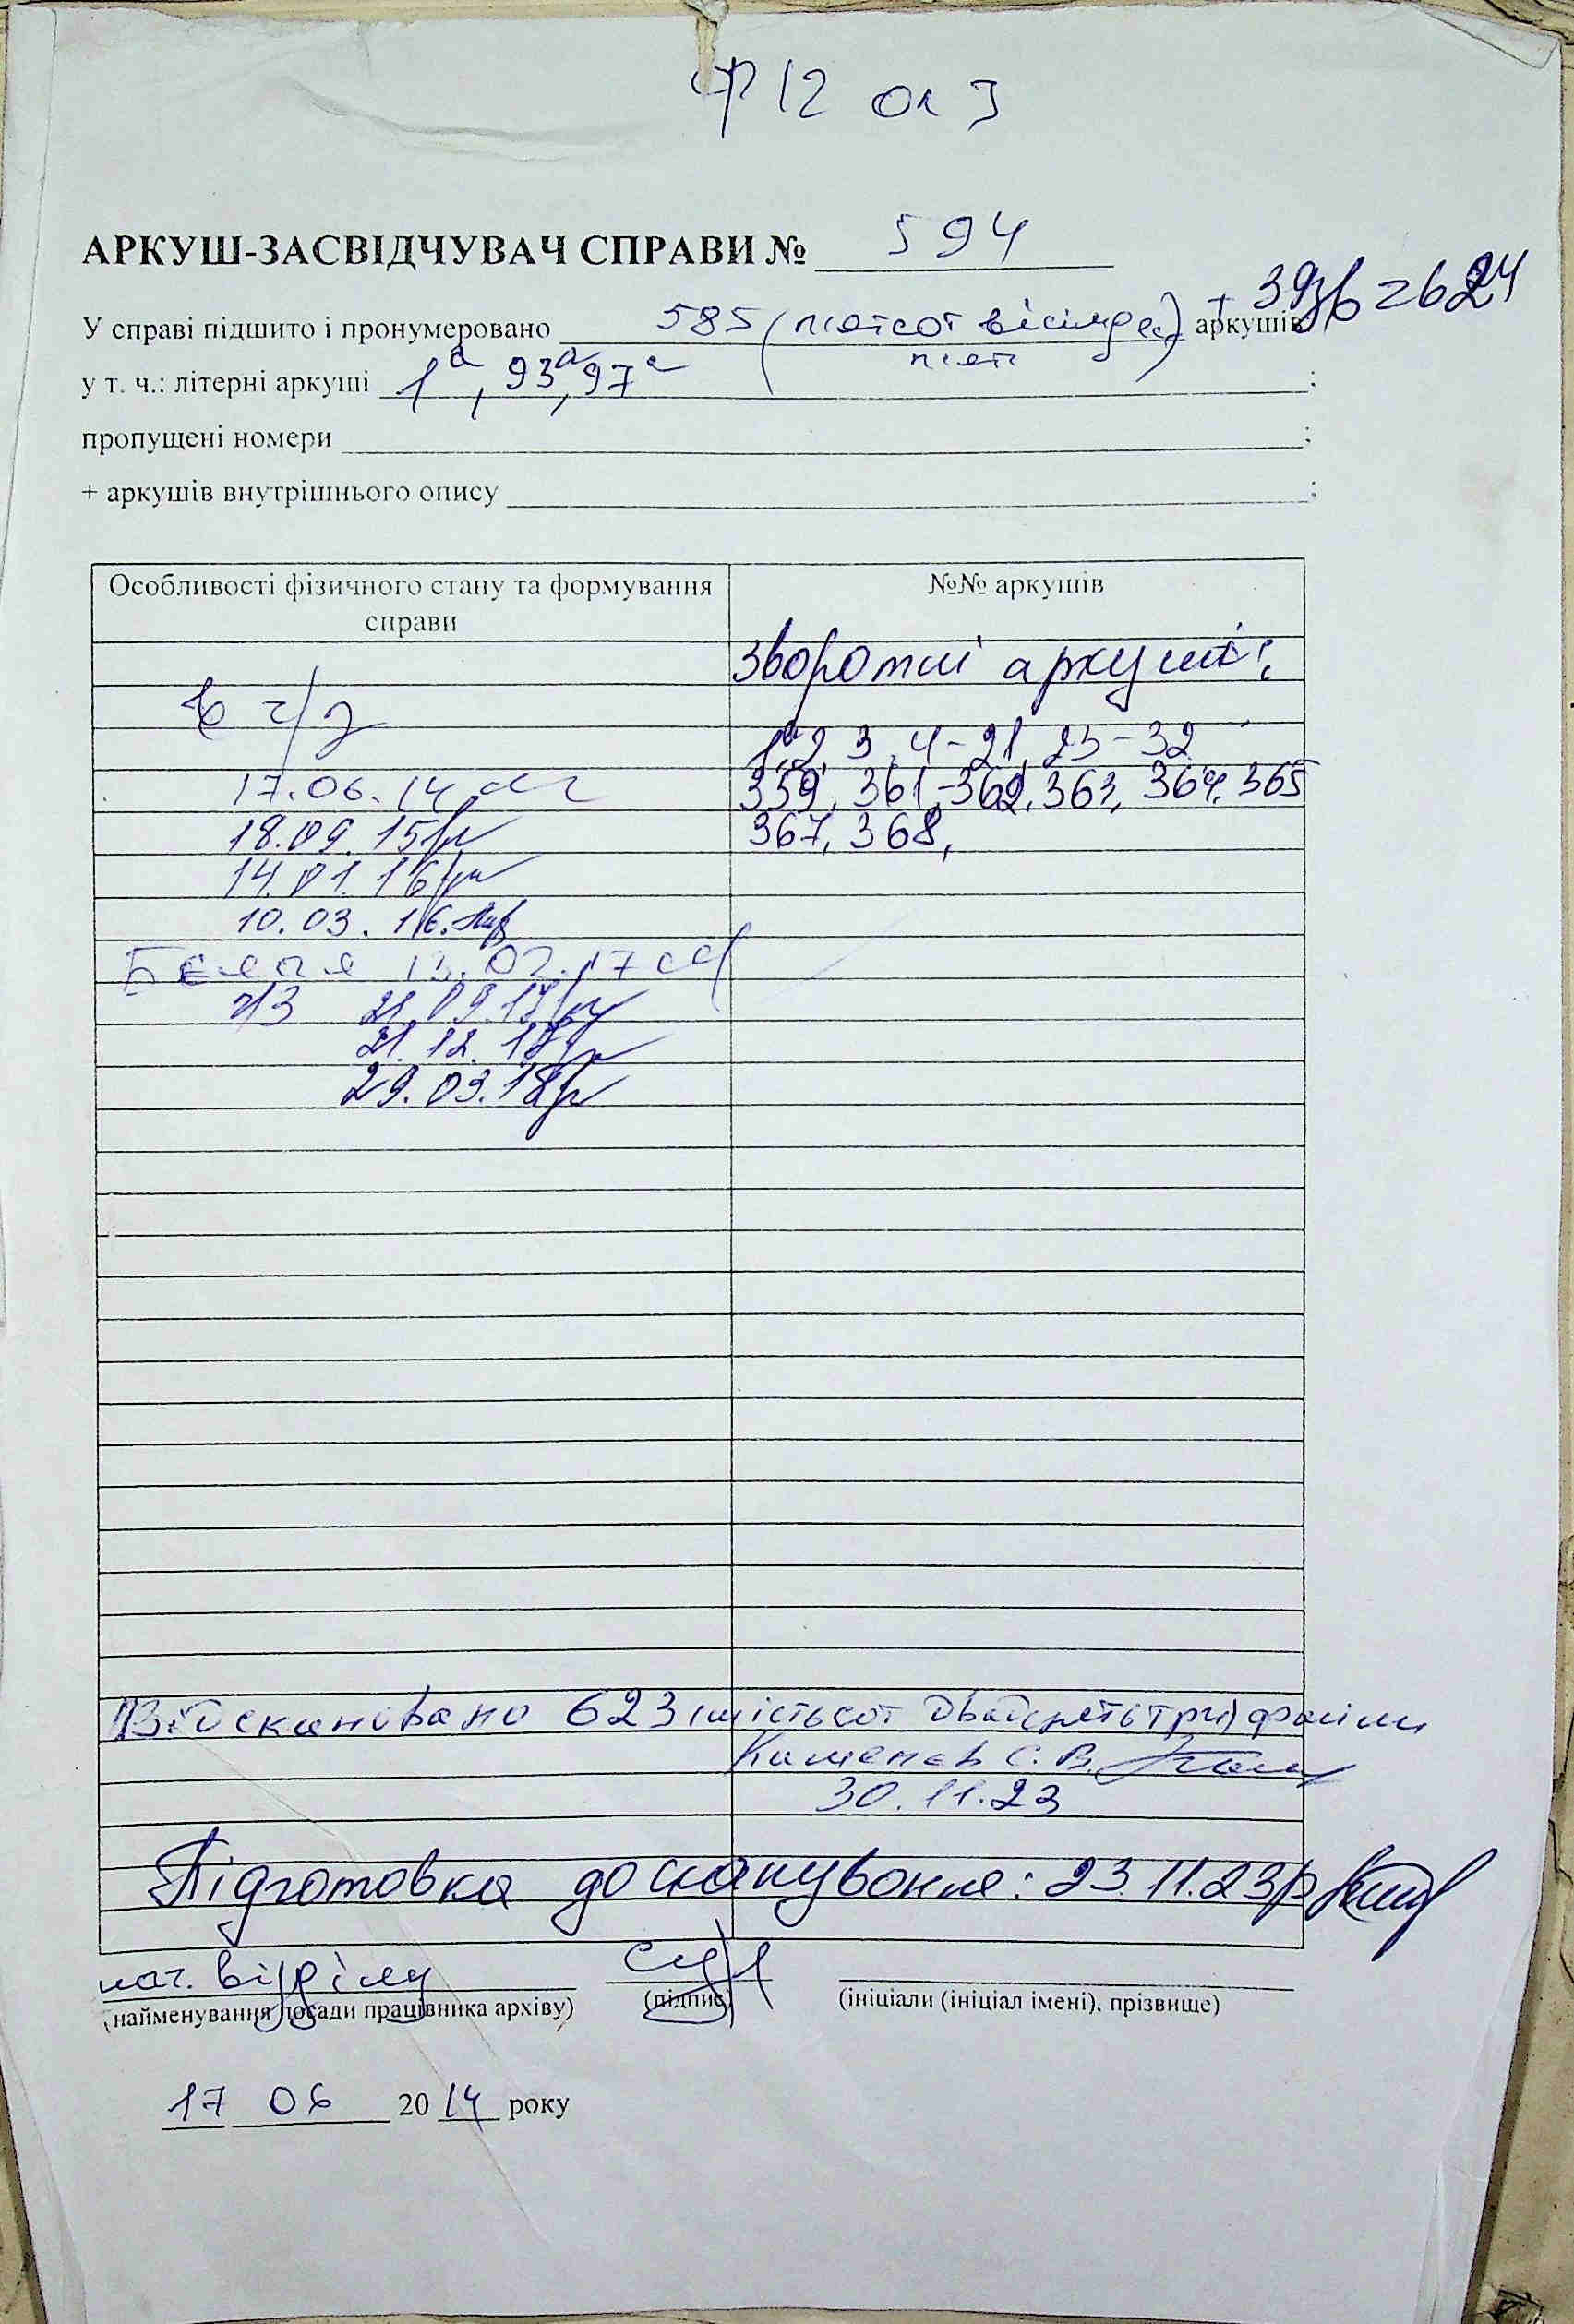 Ф 12 оп 3
АРКУШ-ЗАСВІДЧУВАЧ СПРАВИ № 594
+ 39зв = 624
У справі підшито і пронумеровано 585 (п'ятсот вісімдесят аркушів
п'ять)
у т. ч.: літерні аркуші 1а, 93а, 97а ;
пропущені номери ;
+ аркушів внутрішнього опису ;
Особливості фізичного стану та формування справи
№№ аркушів
зворотні аркуші:
в ч/з
1а, 2, 3, 4-21, 25-32
17.06.14
359, 361-362, 363, 364, 365
18.09.15
367, 368,
14.01.16
10.03.16.
13.02.17
ч/з 21.09.17
21.12.17
29.03.18
Відскановано 623 (шістьсот двадцять три) файли
Каменєв С. В.
30.11.23
Підготовка до сканування: 23.11.23р
нач. відділу
(найменування посади працівника архіву)
(підпис)
(ініціали (ініціал імені), прізвище)
17 06 2014 року